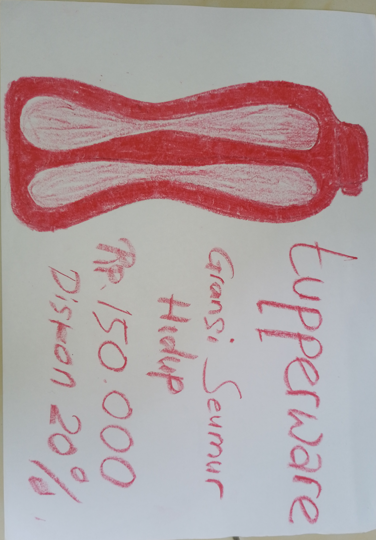 tupperware
Gransi Seumur
Hidup
Rp. 150.000
Diskon 20%.